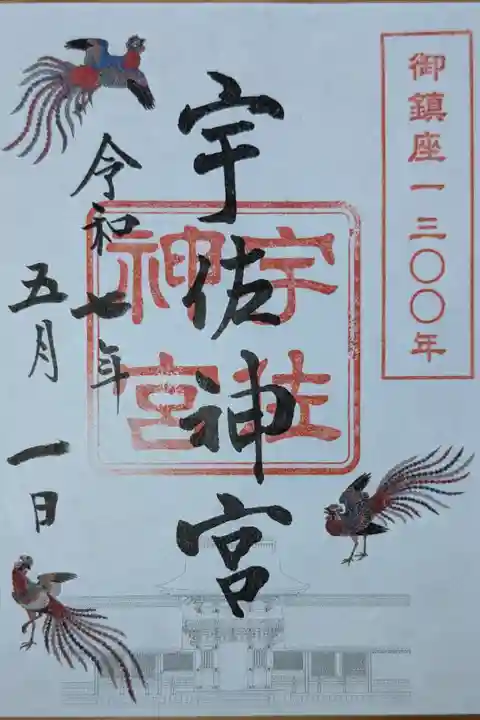 御鎮座一三〇〇年
宇佐神宮
宇佐
神宮
令和七年
五月一日